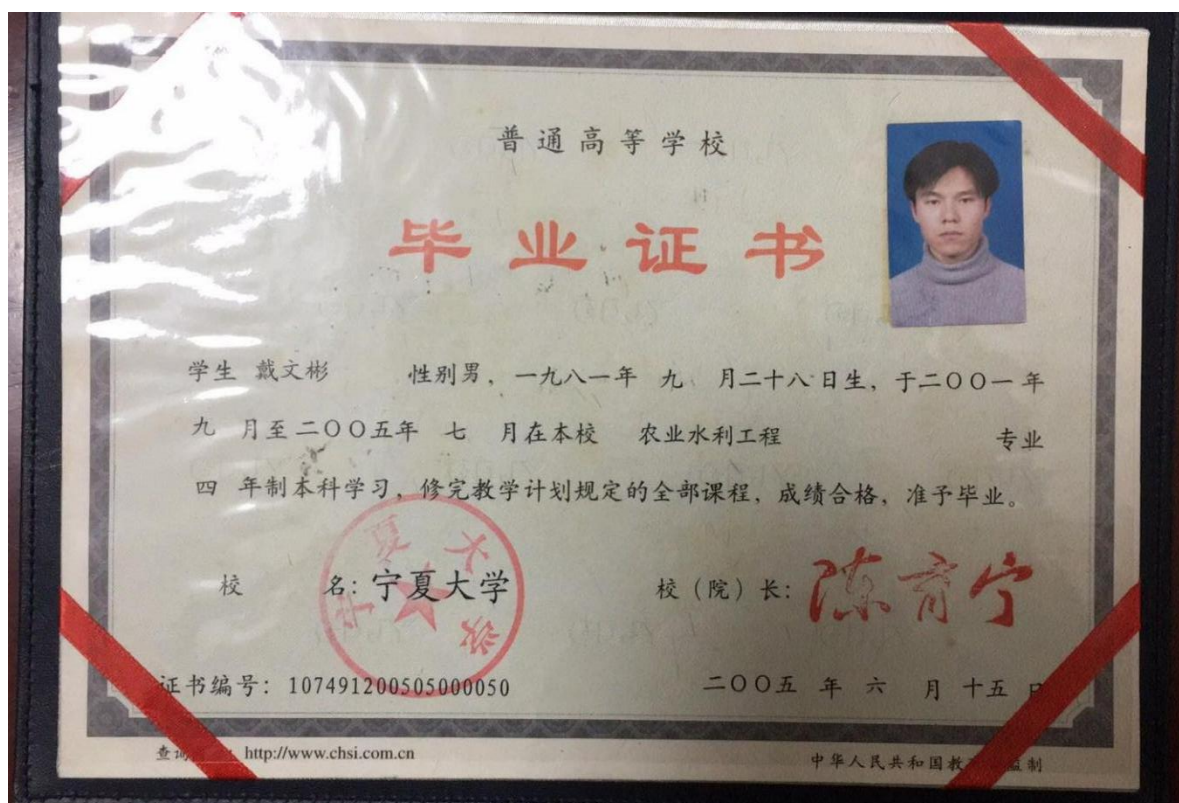 普通高等学校
毕业证书
学生 戴文彬 性别男，一九八一年 九 月二十八日生，于二〇〇一年
九 月至二〇〇五年 七 月在本校 农业水利工程 专业
四 年制本科学习，修完教学计划规定的全部课程，成绩合格，准予毕业。
校 名：宁夏大学 校（院）长：陈育宁
宁夏大学
证书编号：107491200505000050 二〇〇五 年 六 月 十五
查询 http://www.chsi.com.cn 中华人民共和国教 监制